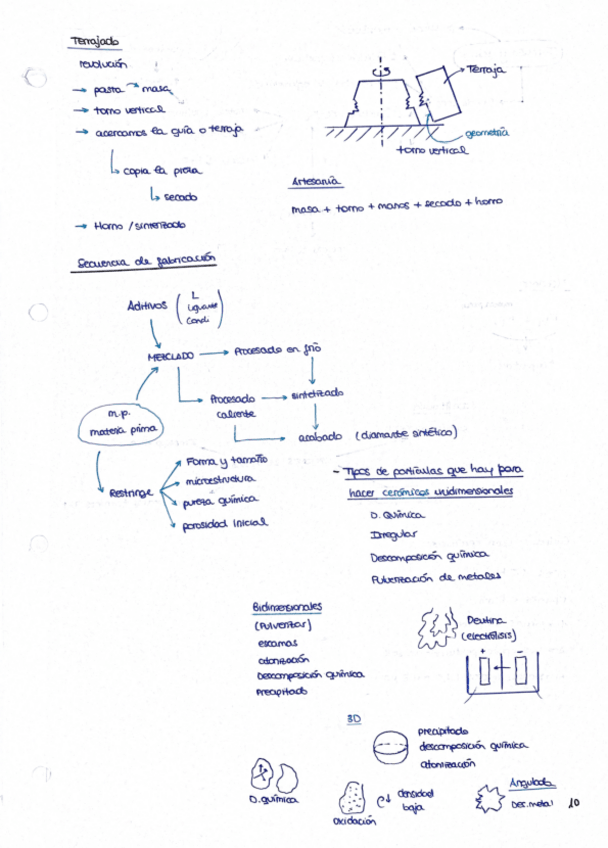 Terrajado
revolución
→ pasta → masa
→ torno vertical
→ acercamos la guía o terraja
copia la pieza
secado
→ Horno / sinterizado
Terraja
geometría
torno vertical
Artesanía
masa + torno + manos + secado + horno
Secuencia de fabricación
Aditivos ( L
Ligante
Condi )
MEZCLADO → Procesado en frío
Procesado caliente → sinterizado
acabado (diamante sintético)
m.p.
materia prima
Restringe
Forma y tamaño
microestructura
pureza química
porosidad inicial
- Tipos de partículas que hay para
hacer cerámicos unidimensionales
D. Química
Irregular
Descomposición química
Pulverización de metales
Bidimensionales
(Pulverizar)
escamas
atonización
Descomposición química
Precipitado
(electrólisis)
+ -
3D
precipitado
descomposición química
atonización
D. química
oxidación
densidad
baja
Angulada
Des. metal
10